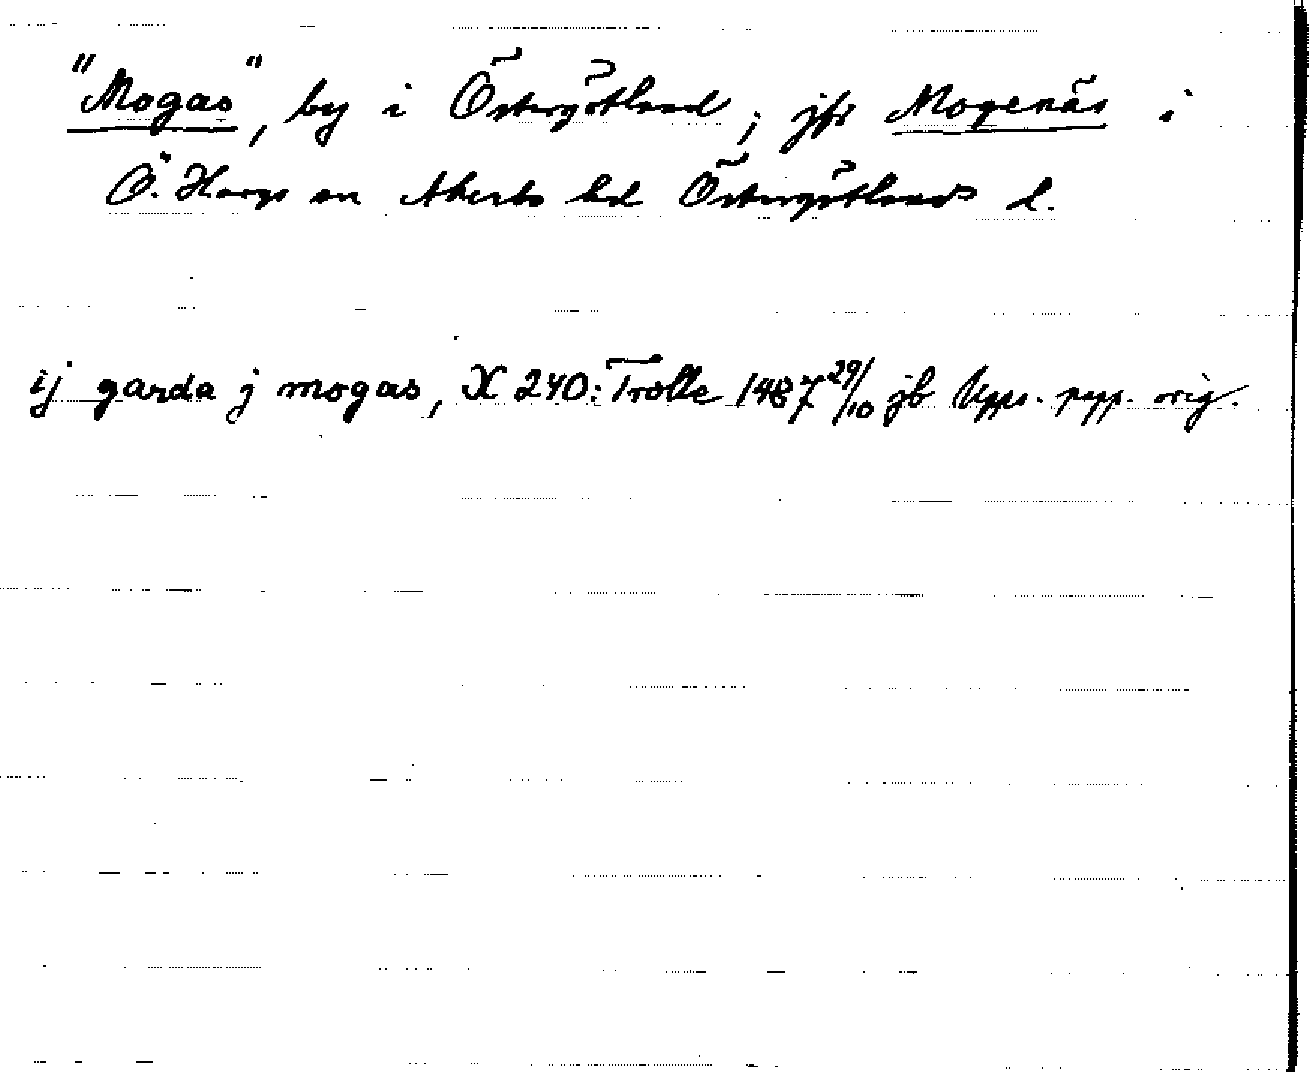 "Mogas", by i Östergötland; jfr Mogenäs i
Ö. Hargs sn Åkerbo hd Östergötlands l.
ij garda j mogas, X 240: Trolle 1487 29/10 jb Upps. papp. orig.